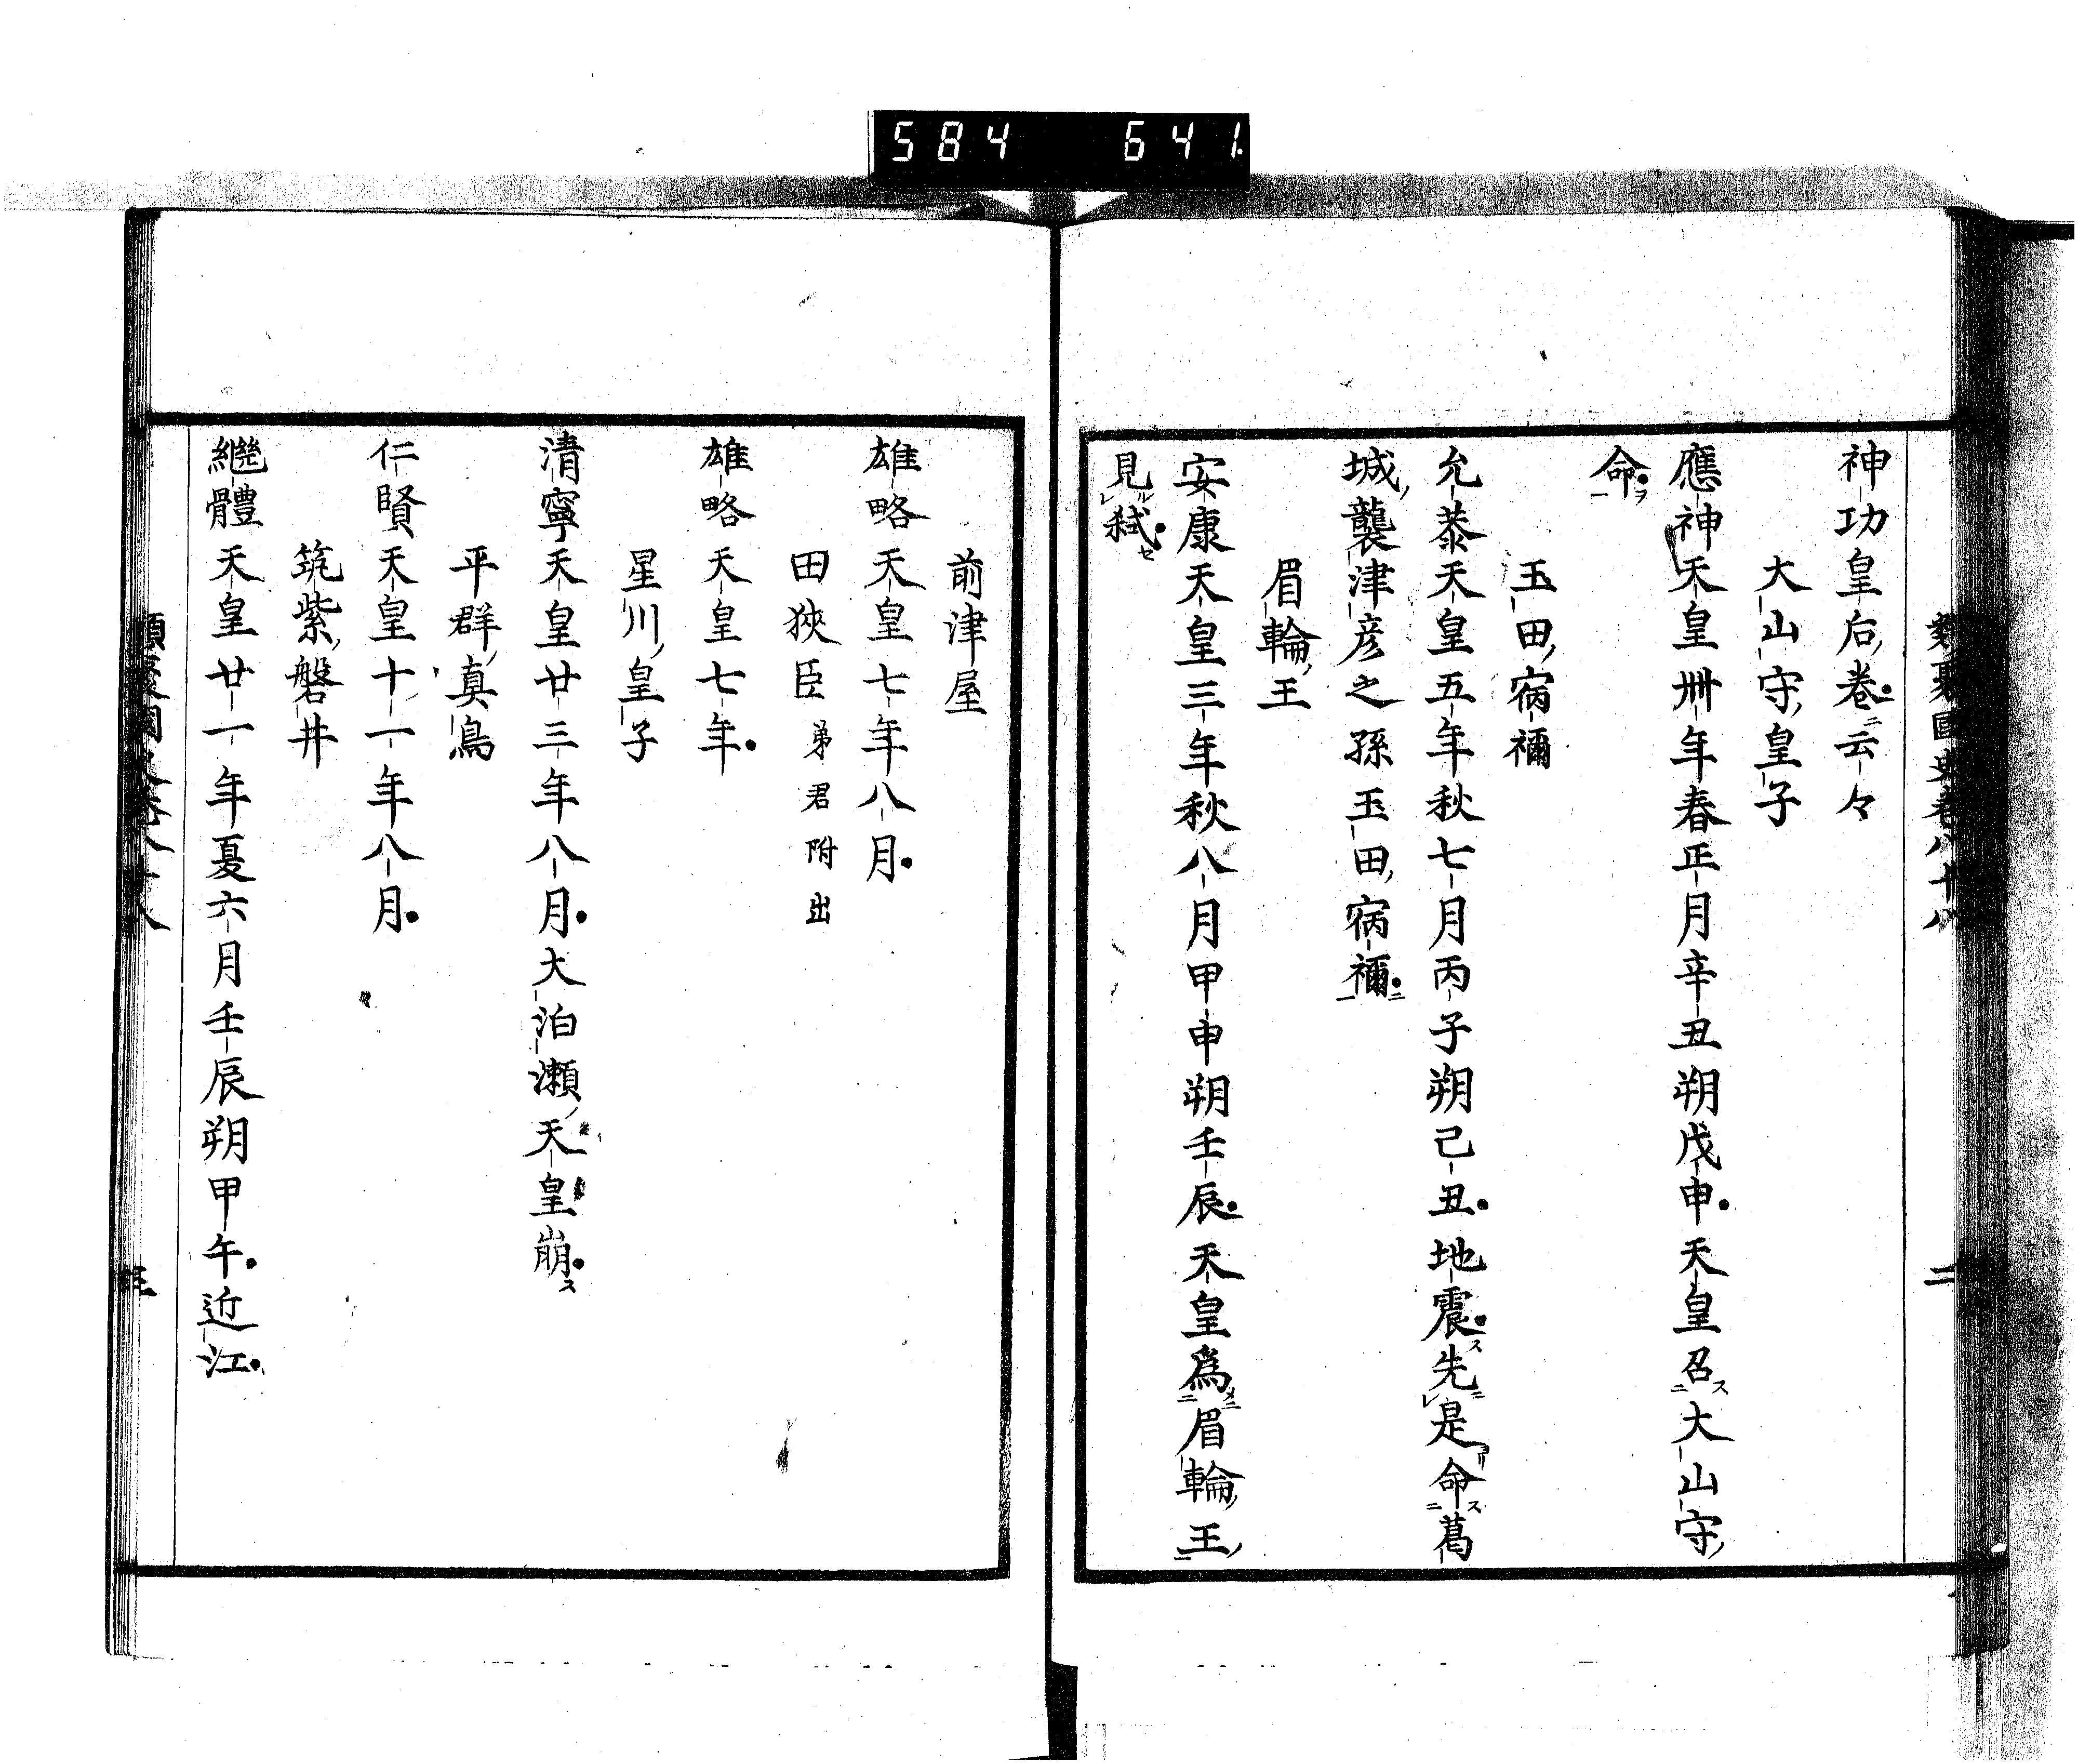 584 641
類聚國史卷八十八 二
神功皇后卷ニ云々
大山守皇子
應神天皇卌年春正月辛丑朔戊申天皇召ス二大山守
命ヲ一
玉田宿禰
允恭天皇五年秋七月丙子朔己丑地震ス先ニレ是ヨリ命ス二葛
城襲津彦之孫玉田宿禰ニ一
眉輪王
安康天皇三年秋八月甲申朔壬辰天皇爲メニ二眉輪王一
見ルレ弑セ
前津屋
雄略天皇七年八月
田狹臣 弟君附出
雄略天皇七年
星川皇子
清寧天皇廿三年八月大泊瀬天皇崩ス
平群真鳥
仁賢天皇十一年八月
筑紫磐井
繼體天皇廿一年夏六月壬辰朔甲午近江
類聚國史卷八十八 三